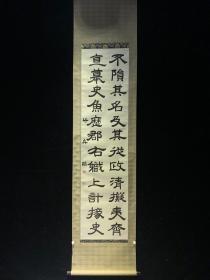 不隕其名及其從政清擬夷齊
直慕史魚歷郡右職上計掾史